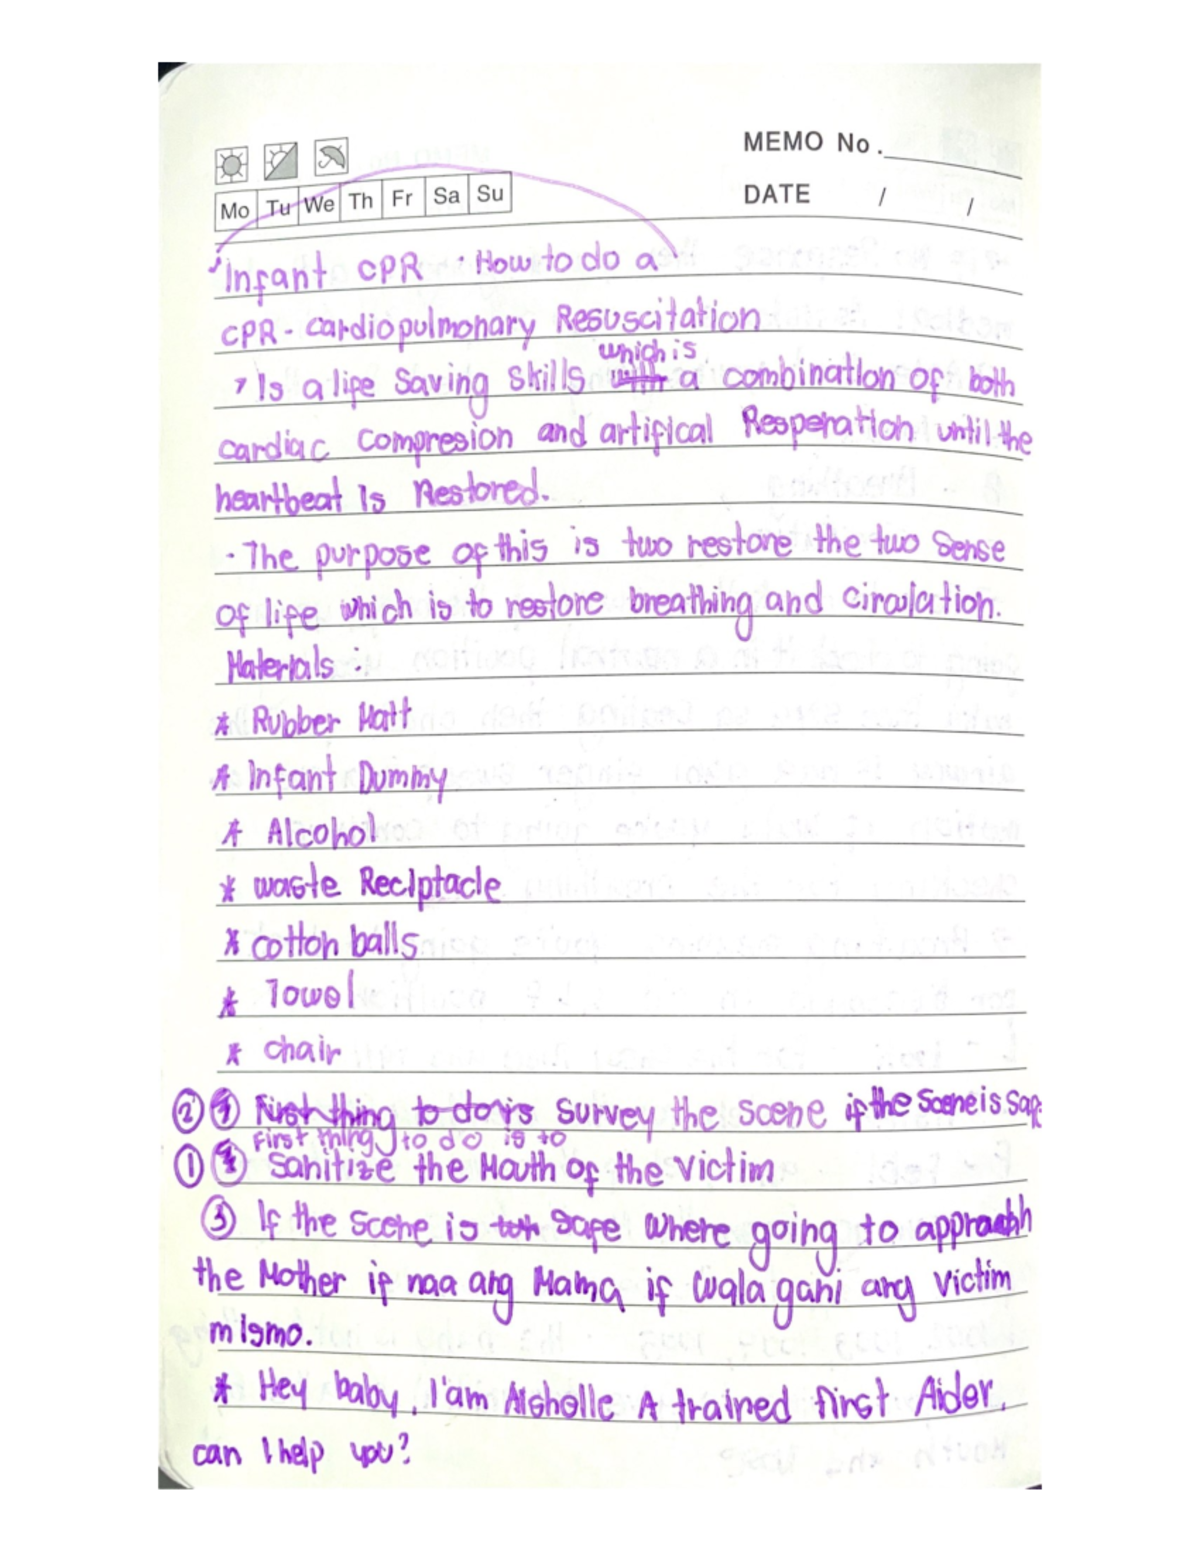 MEMO No.
Mo Tu We Th Fr Sa Su
DATE / /
Infant CPR • How to do a
CPR - cardiopulmonary Resuscitation
Is a life Saving Skills with which is a combination of both
cardiac compresion and artifical Resperation until the
heartbeat Is Restored.
• The purpose of this is two restore the two Sense
of life which is to restore breathing and circulation.
Materials :
* Rubber Matt
* Infant Dummy
* Alcohol
* waste Reciptacle
* cotton balls
* Towel
* chair
② ① First thing to do is survey the scene if the Scene is Saf
First thing to do is to
① ② Sanitize the Mouth of the victim
③ If the scene is safe where going to approach
the Mother if naa ang Mama if wala gani ang victim
mismo.
* Hey baby, I'am Aisholle A trained first Aider,
can I help you?